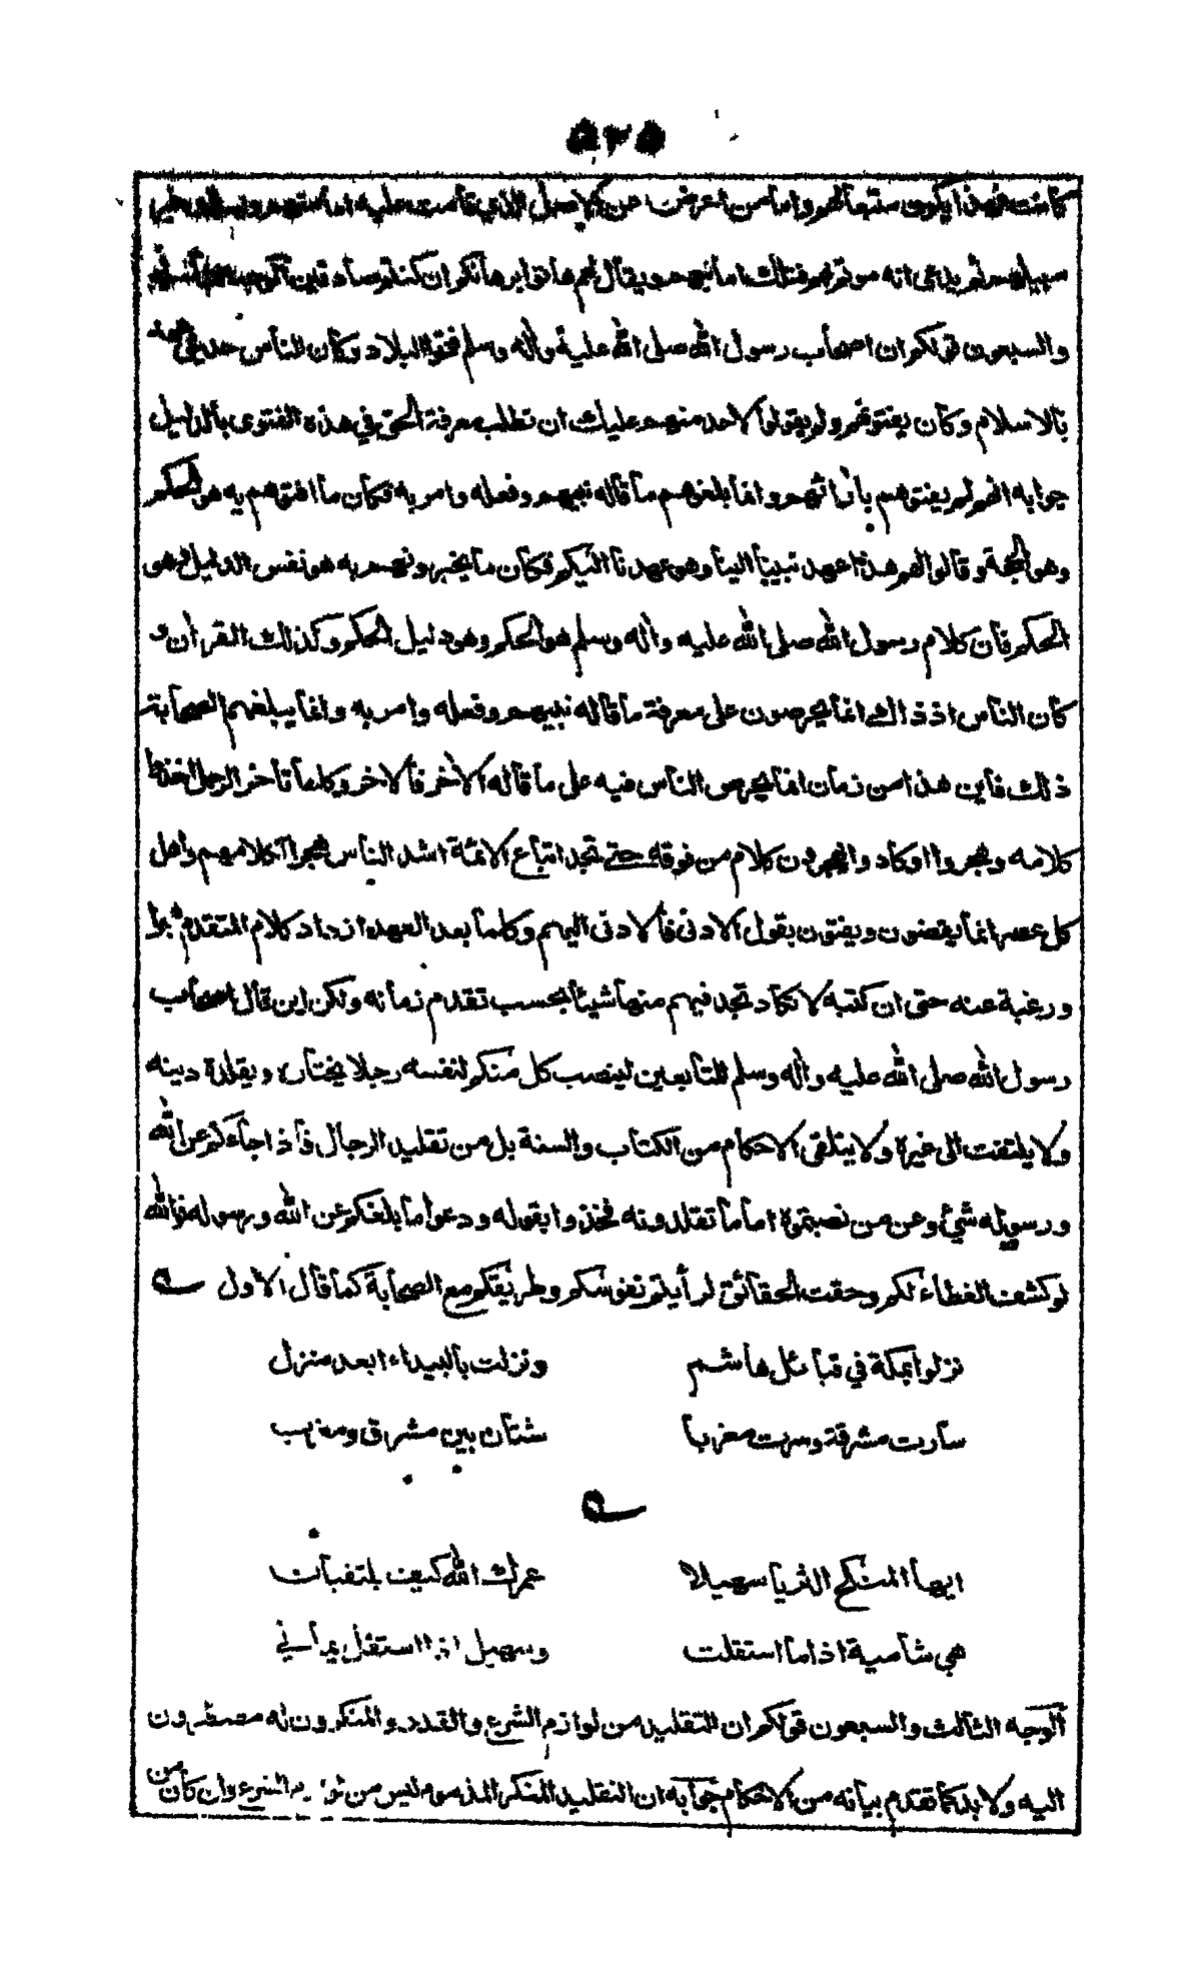 ٥٢٥
كانت فهذا يكون متبعا لهم واما من اعرض عن الاصل الذي قامت عليه امامتهم ويسلك غير
سبيلهم ثم يدعي انه مؤتم بهم فتلك امانيهم ويقال لهم هاتوا برهانكم ان كنتم صادقين الوجه الثاني
والسبعون قولكم ان اصحاب رسول الله صلى الله عليه واله وسلم فتحوا البلاد وكان الناس حديثي عهد
بالاسلام وكان يفتونهم ولم يقولوا لاحد منهم عليك ان تطلب معرفة الحق في هذه الفتوى بالدليل
جوابه انهم لم يفتوهم بآرائهم وانما بلغوهم ما قاله نبيهم وفعله وامر به فكان ما افتوهم به هو الحكم
وهو الحجة وقالوا لهم هذا عهد نبينا الينا وهو عهدنا اليكم فكان ما يخبرونهم به هو نفس الدليل وهو
الحكم فان كلام رسول الله صلى الله عليه واله وسلم هو الحكم وهو دليل الحكم وكذلك القرآن و
كان الناس اذ ذاك انما يحرصون على معرفة ما قاله نبيهم وفعله وامر به وانما يبلغهم الصحابة
ذلك فاين هذا من زمان انما يحرص الناس فيه على ما قاله الآخر فالاخر وكلما تأخر الرجل اخذوا
كلامه وهجروا او كادوا يهجرون كلام من فوقه حتى تجد اتباع الائمة اشد الناس هجرا لكلامهم واهل
كل عصر انما يقضون ويفتون بقول الادنى فالادنى اليهم وكلما بعد العهد ازداد كلام المتقدم هجرا
ورغبة عنه حتى ان كتبه لا تكاد تجد فيهم منها شيئا بحسب تقدم زمانه ولكن اين قال اصحاب
رسول الله صلى الله عليه واله وسلم للتابعين لينصب كل منكم لنفسه رجلا يختاره ويقلده دينه
ولا يلتفت الى غيره ولا يتلقى الاحكام من الكتاب والسنة بل من تقليد الرجال فاذا جاءكم عن الله
ورسوله شيء وعن من نصبتموه اماما تقلدونه فخذوا بقوله ودعوا ما بلغكم عن الله ورسوله فوالله
لو كشف الغطاء لكم وحقت الحقائق لرأيتم نفوسكم وطريقكم مع الصحابة كما قال الاول
نزلوا بمكة في قبائل هاشم ونزلت بالبيداء ابعد منزل
سارت مشرقة وسرت مغربا شتان بين مشرق ومغرب
ايها المنكح الثريا سهيلا عمرك الله كيف يلتقيان
هي شامية اذا ما استقلت وسهيل اذا استقل يماني
الوجه الثالث والسبعون قولكم ان التقليد من لوازم الشرع والقدر والمنكرون له مضطرون
اليه ولا بد كما تقدم بيانه من الاحكام جوابه ان التقليد المنكر المذموم ليس من لوازم الشرع وان كان من